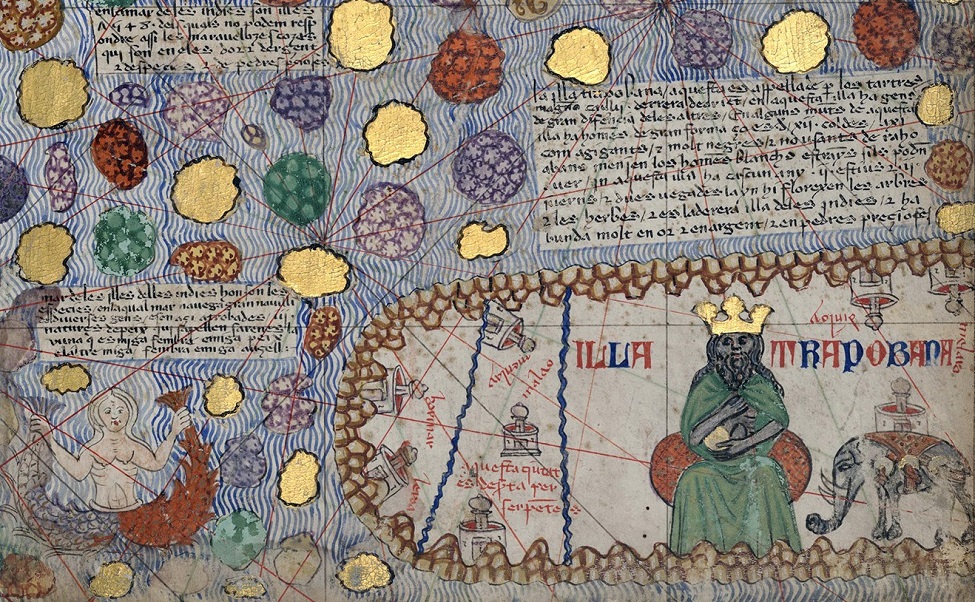 en la mar de les indies son illes
7548 dels quals no podem resp
ondre assi les maravellozes cozes
qui son en eles dor z dargent
z despecies z de pedres precioses
la illa trapobana / aquesta es appellade p los tartres
magno caulij derrera de orient / en aquesta illa ha gens
de gran diferencia de les altres / En alguns munts de aquesta
illa ha homes de gran forma ço es de xij coldes / axi
com agigants / z molt negres / z no usants de raho
abans menjen los homes blanchs estranys sils poden
auer / in aquesta illa ha cascun any ij estius z ij
iuerns / z dues uegades lany hi florexen los arbres
z les herbes / z es la derera illa de les indies / z ha
bunda molt en or z en argent / z en pedres precioses
mar de les illes deles indies hon son les
especies / en la qual mar nauega gran nauili
de diuerses gens / z son aci atrobades iij
natures de peix qui sapellen sarenes la
una q es miga fembra e miga peix
e laltre miga fembra e miga aucell
ILLA TRAPOBANA
malao
aquesta ciutat
es desta per
serpetes